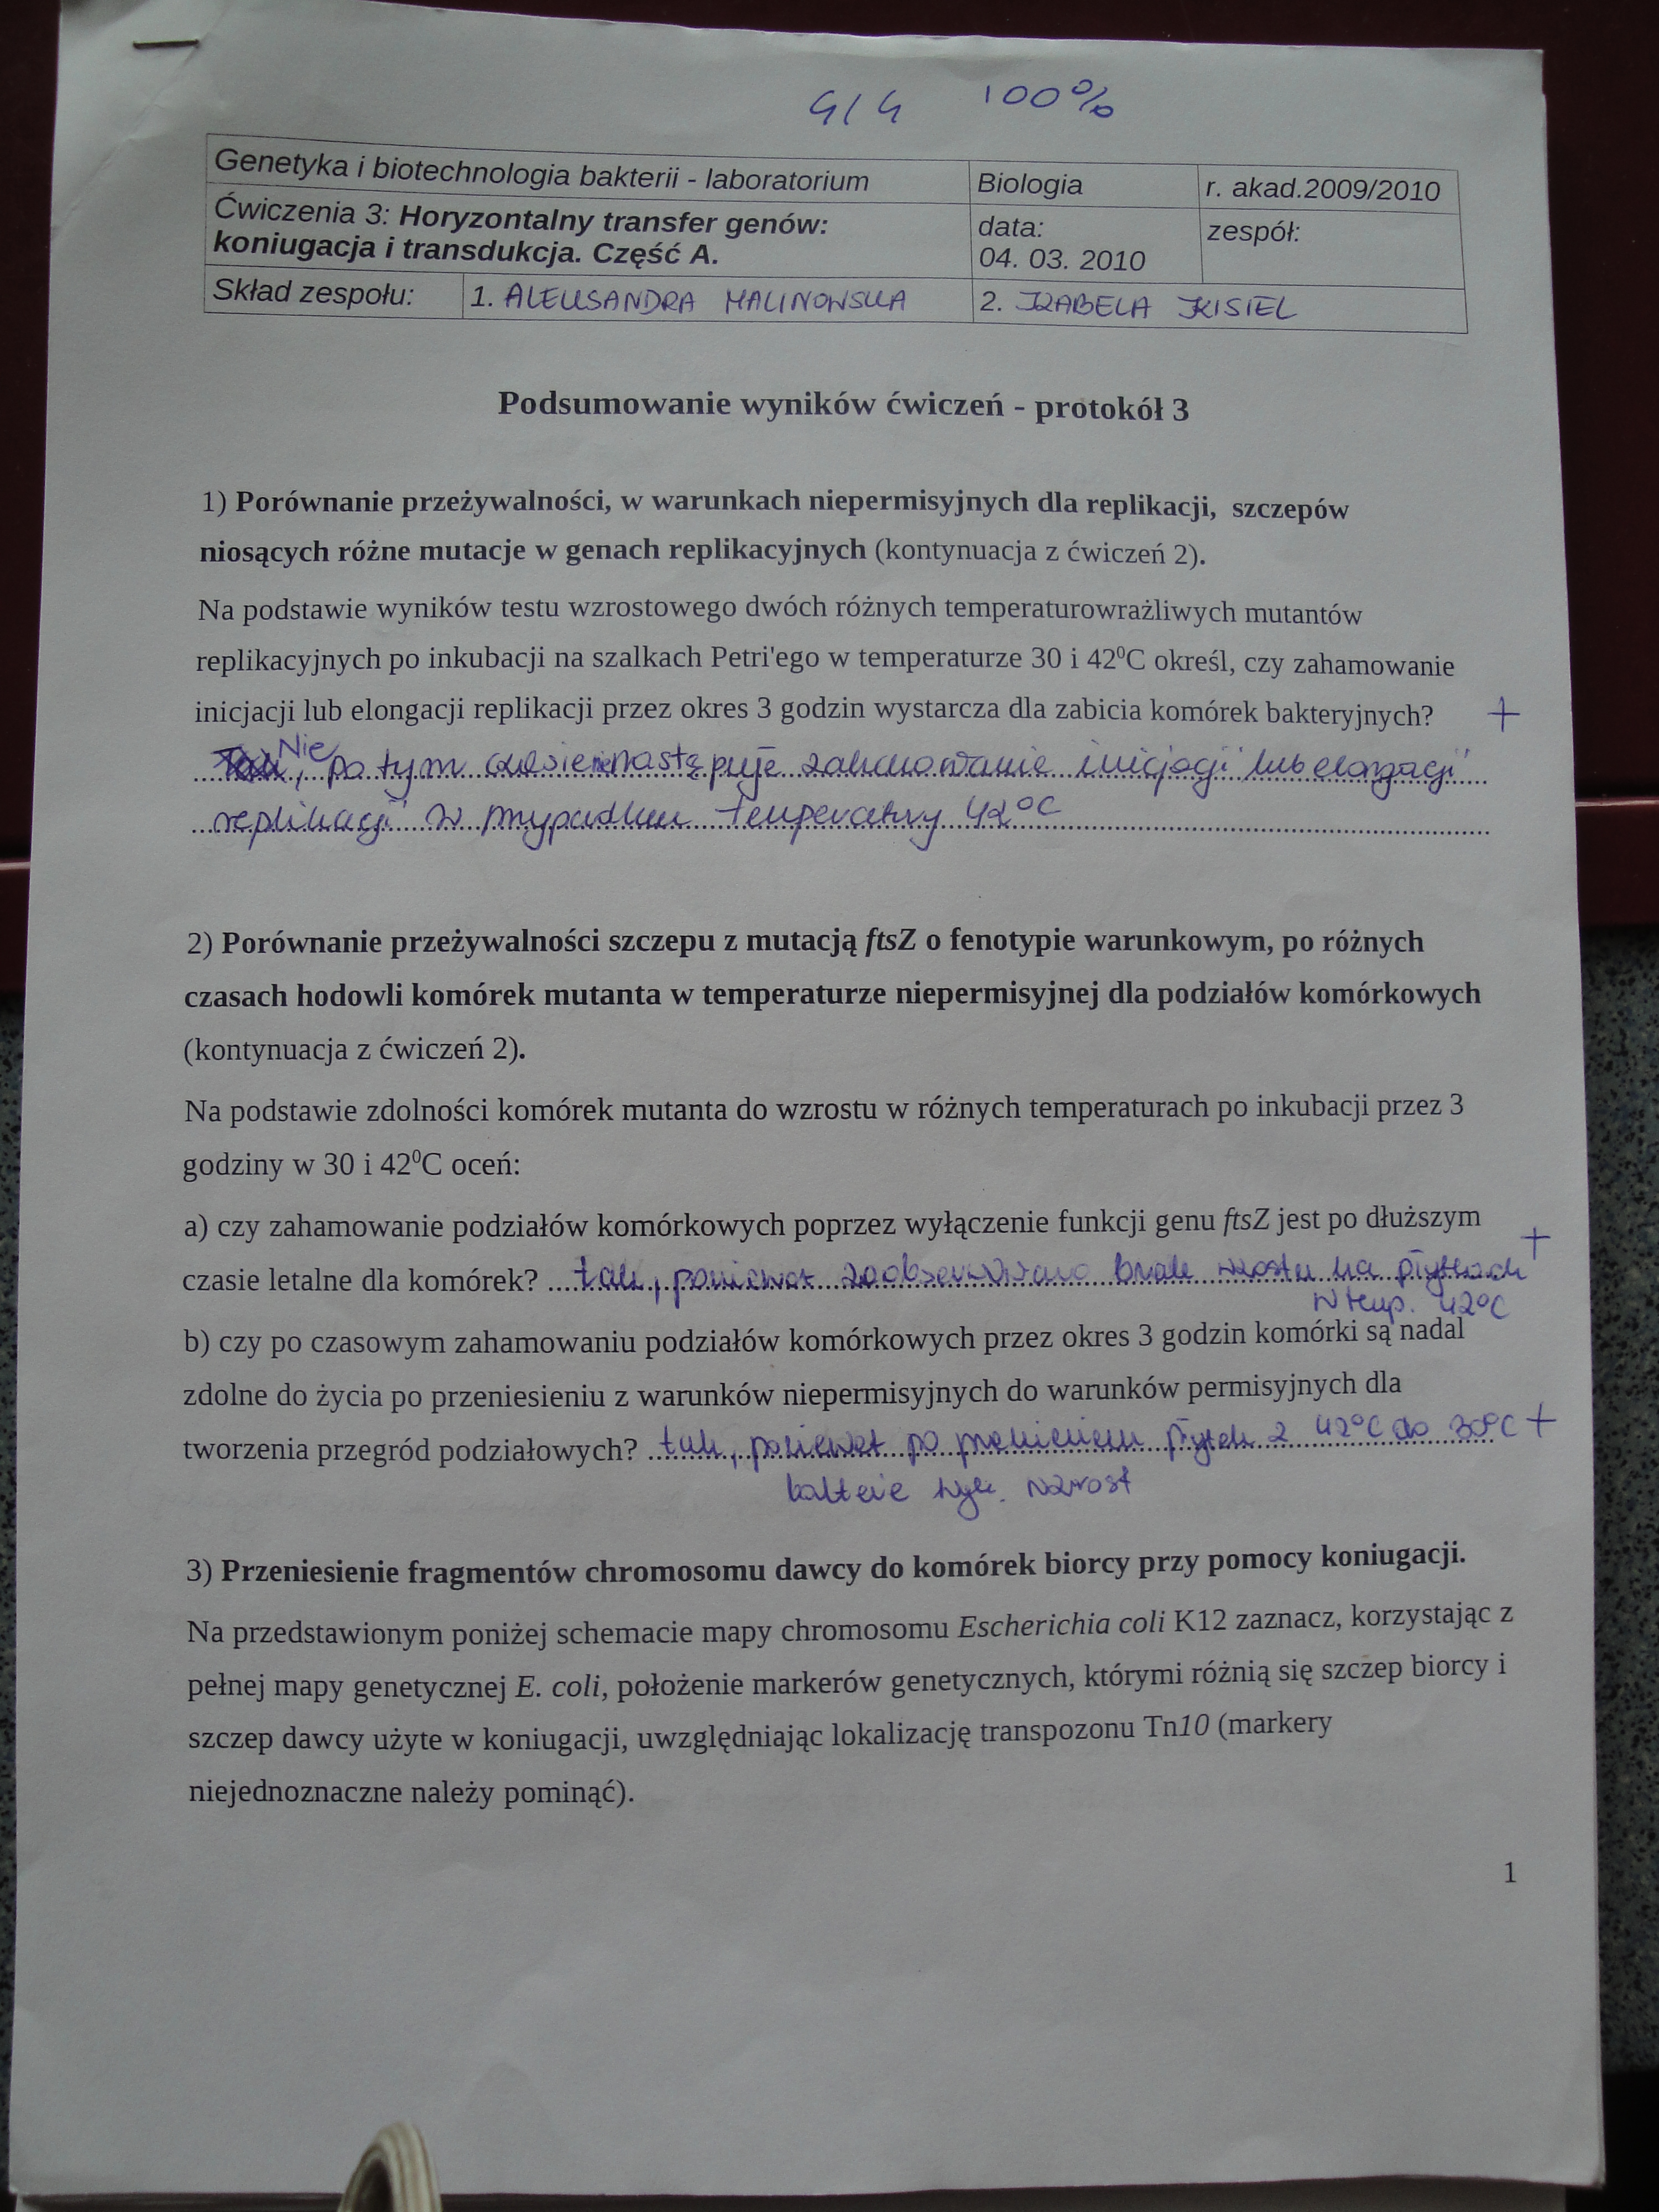 4/4 100%
Genetyka i biotechnologia bakterii - laboratorium Biologia r. akad.2009/2010
Ćwiczenia 3: Horyzontalny transfer genów: koniugacja i transdukcja. Część A. data: 04. 03. 2010 zespół:
Skład zespołu: 1. ALEKSANDRA MALINOWSKA 2. IZABELA KISIEL
Podsumowanie wyników ćwiczeń - protokół 3
1) Porównanie przeżywalności, w warunkach niepermisyjnych dla replikacji, szczepów
niosących różne mutacje w genach replikacyjnych (kontynuacja z ćwiczeń 2).
Na podstawie wyników testu wzrostowego dwóch różnych temperaturowrażliwych mutantów
replikacyjnych po inkubacji na szalkach Petri'ego w temperaturze 30 i 42⁰C określ, czy zahamowanie
inicjacji lub elongacji replikacji przez okres 3 godzin wystarcza dla zabicia komórek bakteryjnych? +
Nie, po tym czasie nie następuje zahamowanie inicjacji lub elongacji
replikacji w przypadku temperatury 42°C
2) Porównanie przeżywalności szczepu z mutacją ftsZ o fenotypie warunkowym, po różnych
czasach hodowli komórek mutanta w temperaturze niepermisyjnej dla podziałów komórkowych
(kontynuacja z ćwiczeń 2).
Na podstawie zdolności komórek mutanta do wzrostu w różnych temperaturach po inkubacji przez 3
godziny w 30 i 42⁰C oceń:
a) czy zahamowanie podziałów komórkowych poprzez wyłączenie funkcji genu ftsZ jest po dłuższym
czasie letalne dla komórek? tak, ponieważ zaobserwowano brak wzrostu na płytkach +
w temp. 42°C
b) czy po czasowym zahamowaniu podziałów komórkowych przez okres 3 godzin komórki są nadal
zdolne do życia po przeniesieniu z warunków niepermisyjnych do warunków permisyjnych dla
tworzenia przegród podziałowych? tak, ponieważ po przeniesieniu płytek z 42°C do 30°C +
bakterie wyk. wzrost
3) Przeniesienie fragmentów chromosomu dawcy do komórek biorcy przy pomocy koniugacji.
Na przedstawionym poniżej schemacie mapy chromosomu Escherichia coli K12 zaznacz, korzystając z
pełnej mapy genetycznej E. coli, położenie markerów genetycznych, którymi różnią się szczep biorcy i
szczep dawcy użyte w koniugacji, uwzględniając lokalizację transpozonu Tn10 (markery
niejednoznaczne należy pominąć).
1